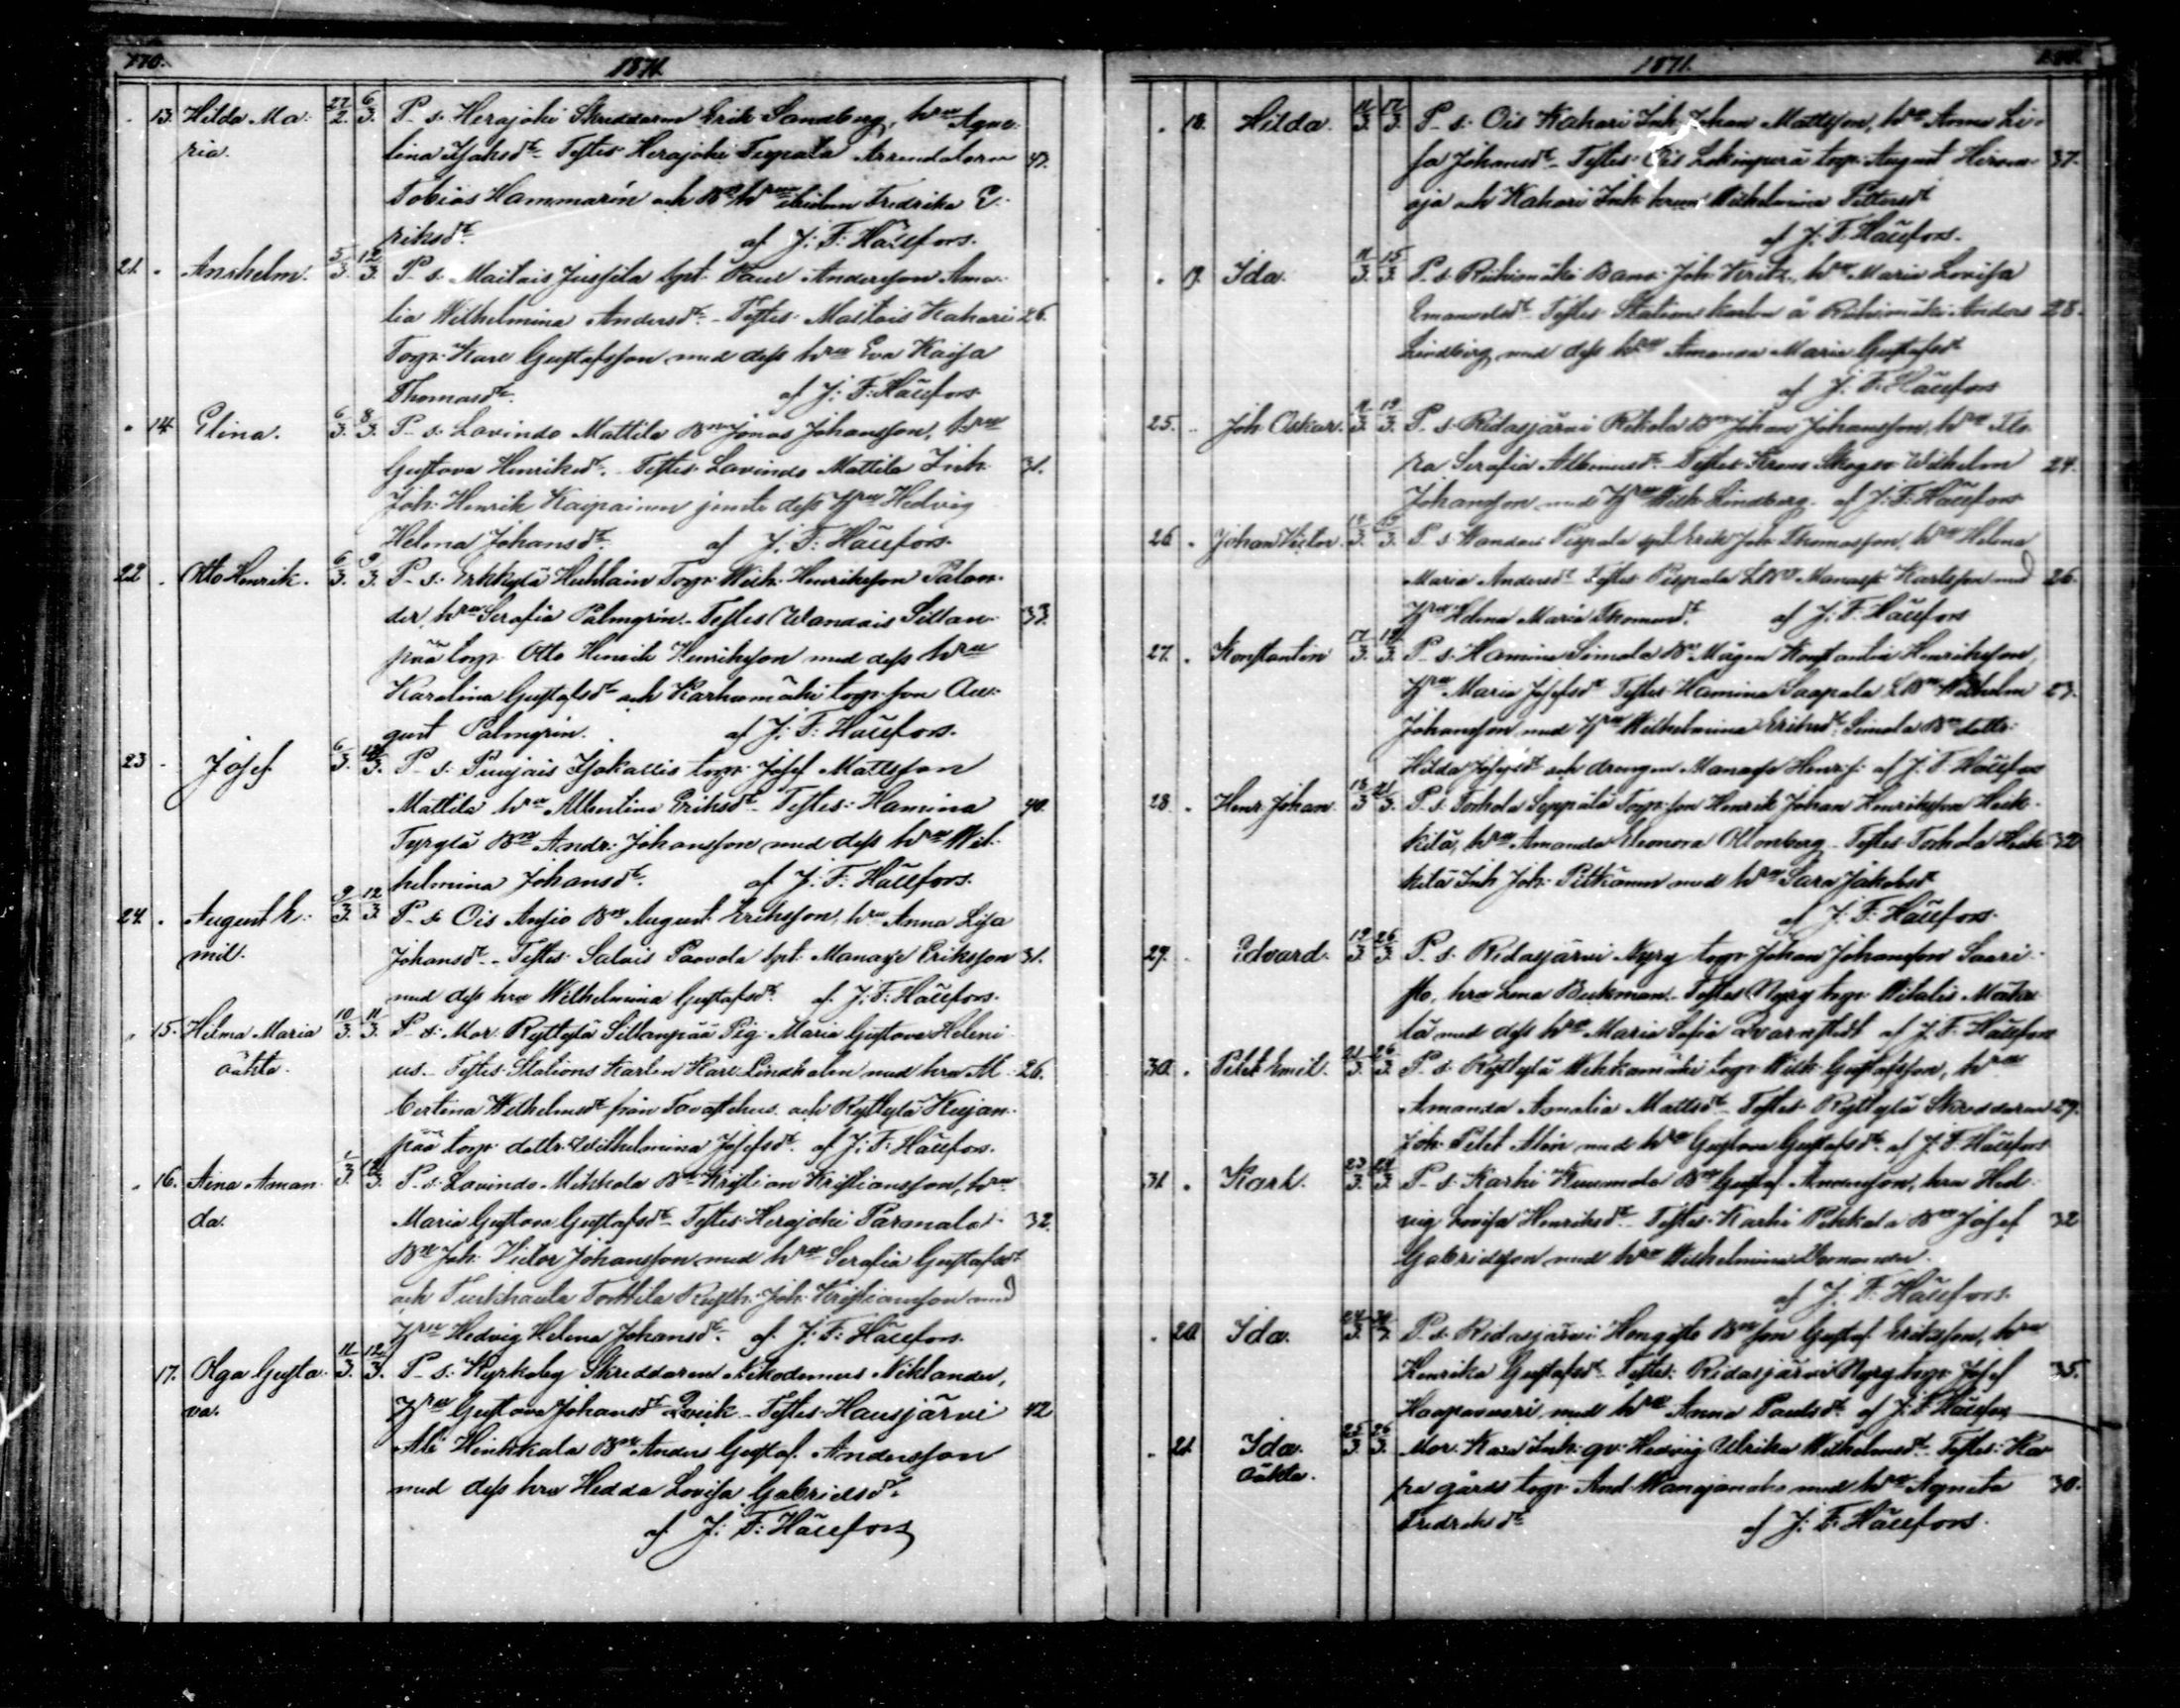 770.
1871.
13. Hilda Ma- 27/2. 6/3. P. s. Herajoki Skreddaren Erik Sandberg, hru Agne-
ria. lina Isaksdr. Testes: Herajoki Terpala Arrendatorn 47.
Tobias Hammarin och Fredrika E-
riksdr. af J: F: Hällfors.
21. Anshelm. 5/3. 12/3. P. s. Maitois Jussila Spt. Paul Andersson Ama-
lia Wilhelmina Andersdr. Testes: Maitois Kahari 26.
Torp. Karl Gustafsson med dess hru Eva Kaisa
Thomasdr. af J: F: Hällfors.
14. Elina. 6/3. 8/3. P. s. Lavindo Mattila Bn Jonas Johansson, hru
Gustava Henriksdr. Testes: Lavindo Mattila Inh. 31.
Joh. Henrik Kaipainen jemte dess Hru Hedvig
Helena Johansdr. af J. F: Hällfors.
22. Otto Henrik. 6/3. 9/3. P. s. Erkkylä Huhtain Torp. Wilh. Henriksson Palan-
der, hru Serafia Palmgrin. Testes Wandais Sillan- 33.
pää torp. Otto Henrik Henriksson med dess hru
Karolina Gustafsdr och Karhumäki torp. son Au-
gust Palmgrin. af J: F: Hällfors.
23 Josef 6/3. 12/3. P. s. Puujais Isokallis torp. Josef Mattsson
Mattila hru Albertina Eriksdr. Testes: Hamina 40.
Tyrylä Bn Andr. Johansson med dess hru Wil-
helmina Johansdr. af J: F: Hällfors.
24. August E- 9/3. 12/3. P. s. Ois Ansio Bn August Eriksson, hru Anna Lisa
mil. Johansdr. Testes: Salois Paavola Spt. Manasse Eriksson 31.
med dess hru Wilhelmina Gustafsdr. af J: F: Hällfors.
15. Hilma Maria 10/3. 11/3. P. s: Mor. Ryttylä Sillanpää Pig. Maria Gustava Heleni-
oäkta. us. Testes: Stations Karlen Karl Lindholm med hru Al- 26.
bertina Wilhelmsdr från Tavastehus och Ryttylä Kujan-
pää torp. dottr. Wilhelmina Josefsdr. af J: F: Hällfors.
16. Aina Aman- P. s: Lavindo Mikkola Bn Kristian Kristiansson, hru
da. Maria Gustava Gustafsdr. Testes: Herajoki Paronala 32.
Bn Joh. Victor Johansson med hru Serafia Gustafsdr
och Turkhauta Tonttila Rusth. Joh. Kristiansson med
Hru Hedvig Helena Johansdr. af J: F: Hällfors.
17. Olga Gusta- 11/3. 12/3. P. s: Kyrkoby Skreddaren Nikodemus Niklander,
va. Hru Gustava Johansdr Qvick. Testes: Hausjärvi 42
Ali Hinkkala Bn Anders Gustaf Andersson
med dess hru Hedda Lovisa Gabrielsdr.
af J: F: Hällfors
1871.
18. Hilda. P. s. Ois Kahari Inh. Johan Mattsson, hru Anna Li-
sa Johansdr. Testes: Ois torp. August 37.
oja och Kahari Inh. hrun Wilhelmina Pettersdr
af J. F. Hällfors.
19. Ida. 11/3. 15/3. P. s. Riihimäki Banv. Joh. hru Maria Lovisa
Emanuelsdr. Testes Stations karlen å Riihimäki Anders 28.
Lindberg med dess hru Amanda Maria Gustafsdr
af J. F: Hällfors
25. Joh. Oskar. 11/3. 19/3. P. s. Ridasjärvi Rekola Bn Johan Johansson, hru Flo-
ra Serafia Testes Krono Skogsv. Wilhelm 24.
Johansson med Hru Wilh. Lindberg. af J: F: Hällfors
26. Johan Victor. P. s. Wandais Pispala spt Erik Joh. Thomasson, hru Helena
Maria Andersdr. Testes Pispala Manasse Karlsson med 26.
Hru Helena Maria af J: F: Hällfors
27. Konstantin P. s. Hamina Simola Bn Mågen Konstantin Henriksson,
Hru Maria Josefsdr Testes Hamina Saapala Wilhelm 23.
Johansson med Hru Wilhelmina Eriksdr. Simola Bn dottr.
Hilda Josefsdr och drengen Manasse Henr. s: af J. F: Hällfors
28. Henr. Johan. 18/3. 21/3. P. s. Torhola Seppälä Torp. son Henrik Johan Henriksson Heik-
kilä, hru Amanda Eleonora Ottonberg. Testes Torhola Heik- 32
kilä Inh Joh. Pitkänen med hru Sara Jakobsdr
af J: F: Hällfors.
29. Edvard. 19/3. 26/3. P. s. Ridasjärvi Nyry torp. Johan Johansson Saari-
sto, hru Lena Beckman. Testes Nyry torp. Vitalis Mäkä-
lä med dess hru Maria Sofia Qvarnstedt af J. F. Hällfors
30. Petet Emil. 21/3. 26/3. P. s. Ryttylä Wehkamäki torp. Wilh. Gustafsson, hru
Amanda Amalia Mattsdr. Testes Ryttylä Skreddaren 29.
Joh. Petet Alén med hru Gustava Gustafsdr. af J: F. Hällfors
31. Karl. P. s. Karhi Kuumola Bn Gustaf Andersson, hru Hed-
vig Lovisa Henriksdr. Testes: Karhi Pekkala Bn Josef 32
Gabrielsson med hru Wilhelmina
af J. F. Hällfors.
20. Ida. P. s. Ridasjärvi Hongisto Bn son Gustaf Eriksson, hru
Henrika Gustafsdr. Testes: Ridasjärvi Nyry torp. Josef 35.
Haapavuori med hru Anna Paulsdr. af J: F. Hällfors
21. Ida. 25/3. 26/3. Mor. Kara Inh. qv. Hedvig Ulrika Wilhelmsdr. Testes: Ka-
oäkta. ra gårds torp. And. med hru Agneta 30.
Fredriksdr af J: F: Hällfors.